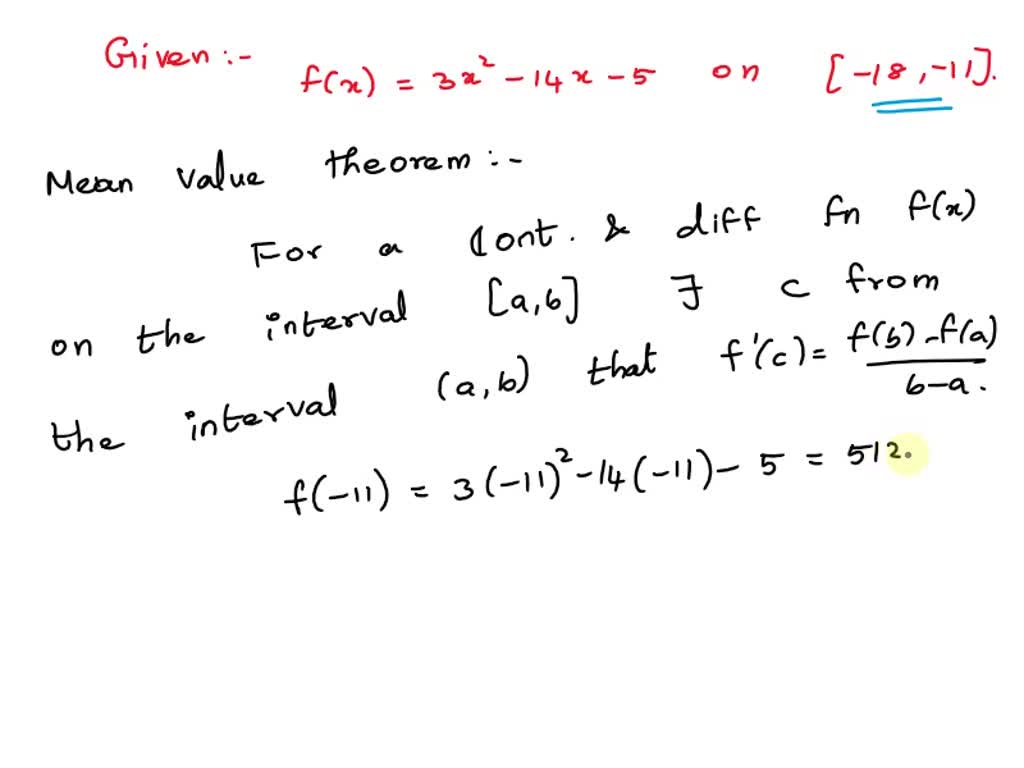 Given :-
f(x) = 3x² - 14x - 5 on [-18, -11].
Mean value theorem :-
For a Cont. & diff fn f(x)
on the interval [a,b] ∃ c from
the interval (a,b) that f'(c) = f(b) - f(a) / b-a.
f(-11) = 3(-11)² - 14(-11) - 5 = 512.